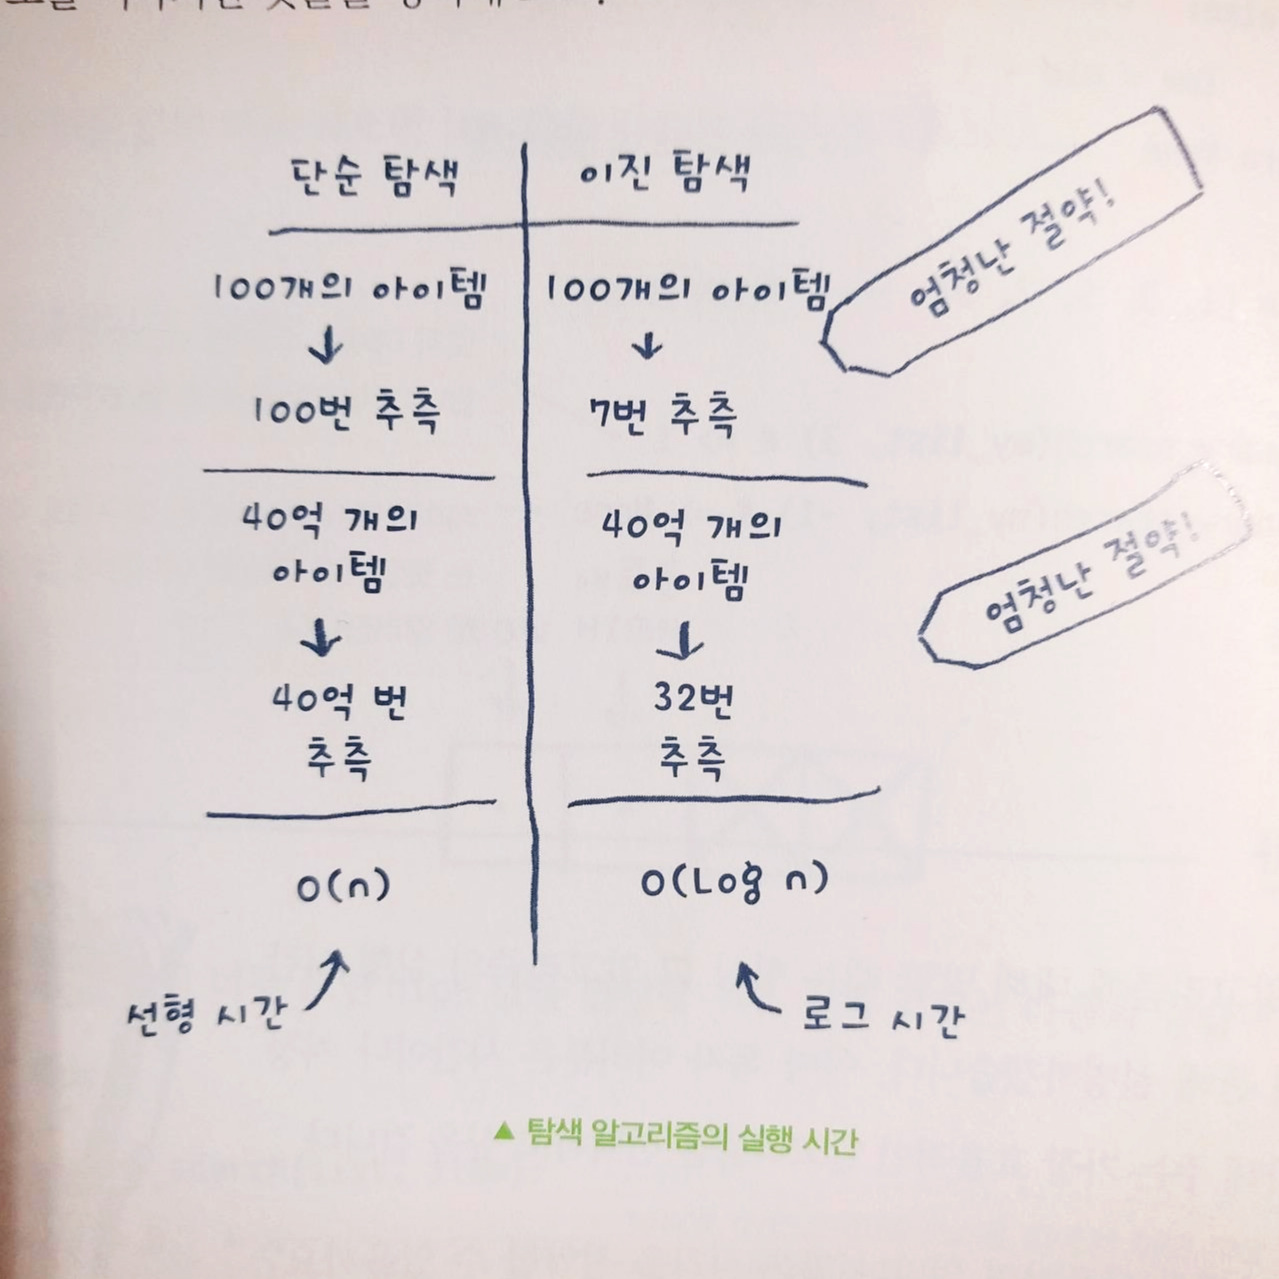 단순 탐색
이진 탐색
100개의 아이템
100개의 아이템
엄청난 절약!
↓
↓
100번 추측
7번 추측
40억 개의
아이템
40억 개의
아이템
엄청난 절약!
↓
↓
40억 번
추측
32번
추측
O(n)
O(Log n)
선형 시간
로그 시간
▲ 탐색 알고리즘의 실행 시간